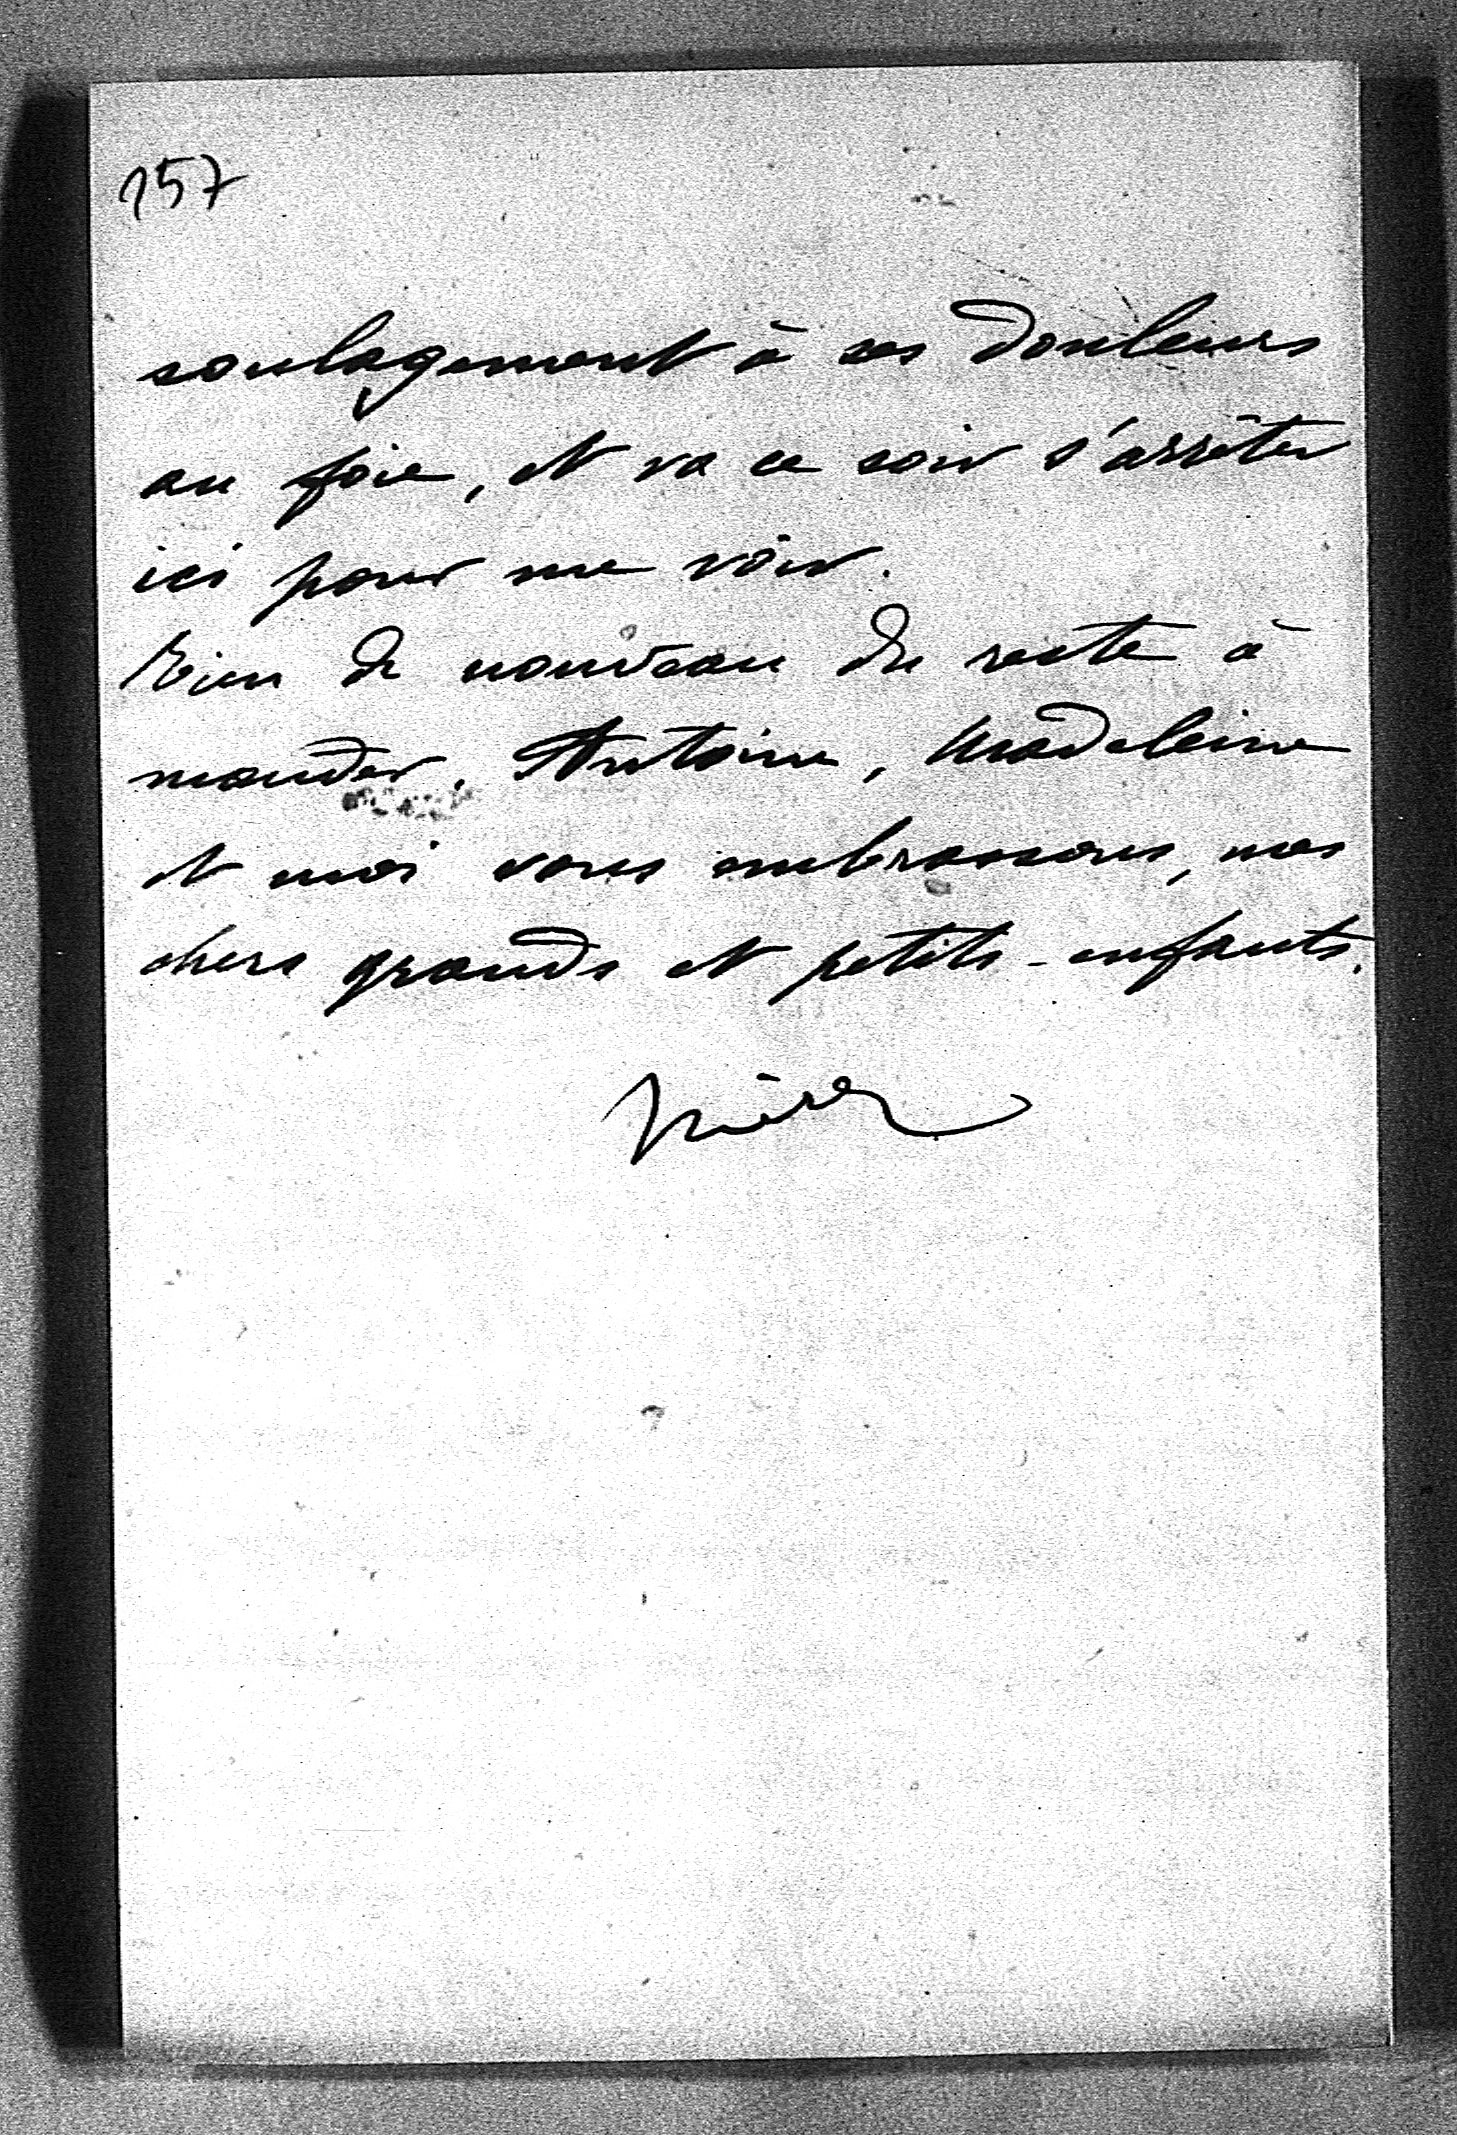 157
soulagement à ses douleurs
au foie, et va ce soir s'arrêter
ici pour me voir.
Rien de nouveau du reste à
mander. Antoine, Madeleine
et moi vous embrassons, mes
chers grands et petits-enfants.
Mère